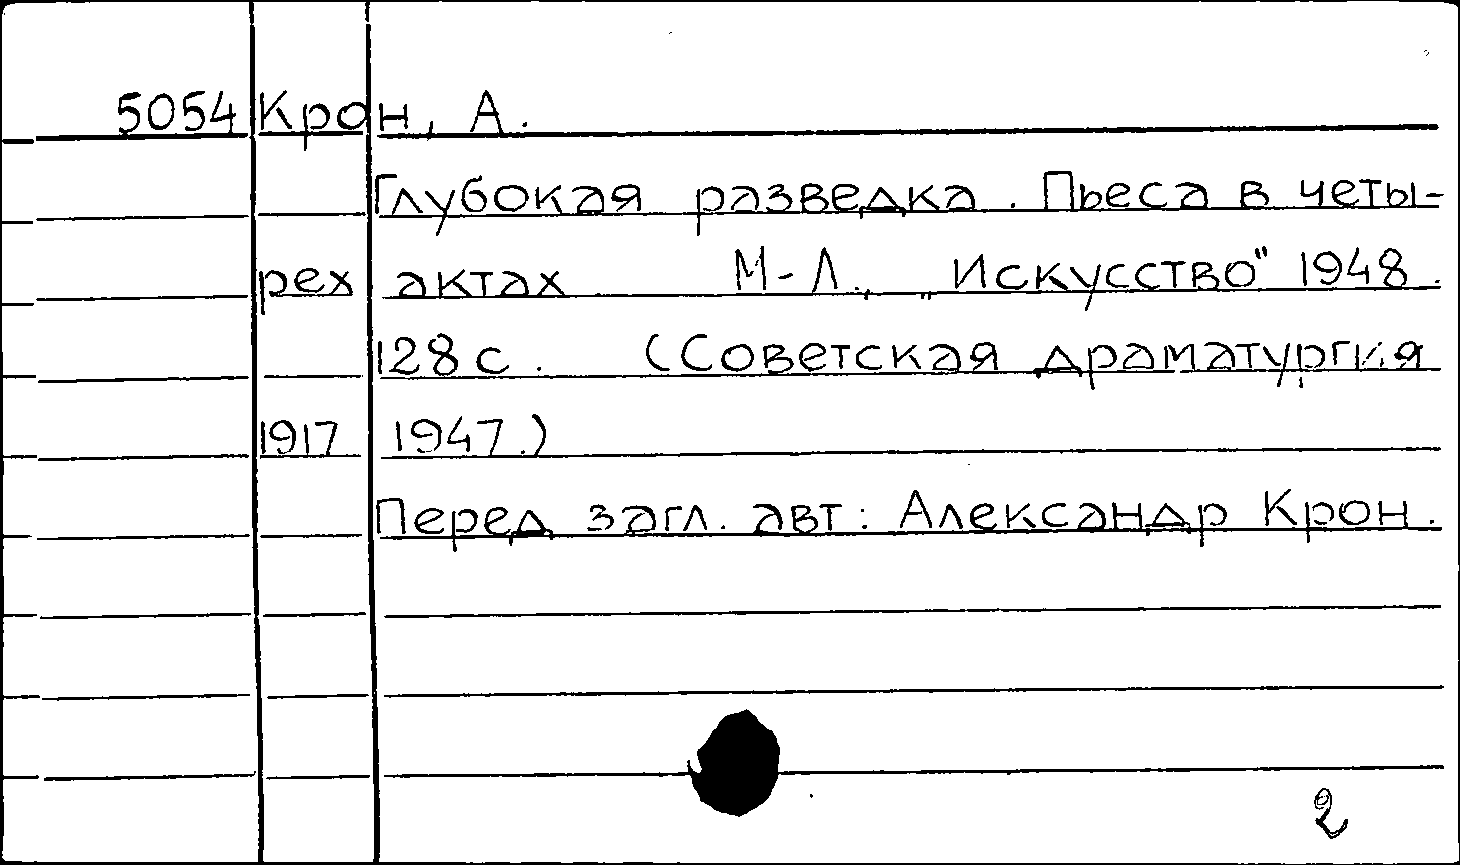 5054 Крон, А.
Глубокая разведка. Пьеса в четы-
рех актах М-Л., „Искусство" 1948.
128 с. (Советская драматургия
1917 1947.)
Перед загл. авт: Александр Крон.
2